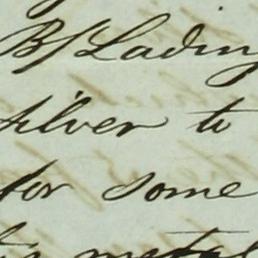 B/Lading
silver to
for some
metal